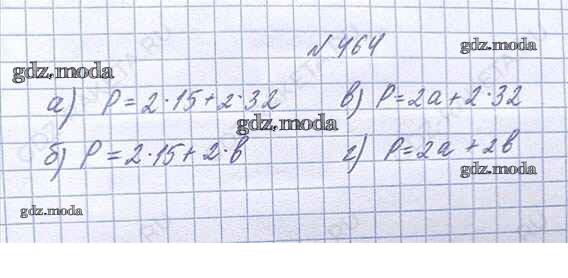 № 464
gdz.moda
gdz.moda
а) P = 2·15 + 2·32
в) P = 2a + 2·32
gdz.moda
б) P = 2·15 + 2·b
г) P = 2a + 2b
gdz.moda
gdz.moda